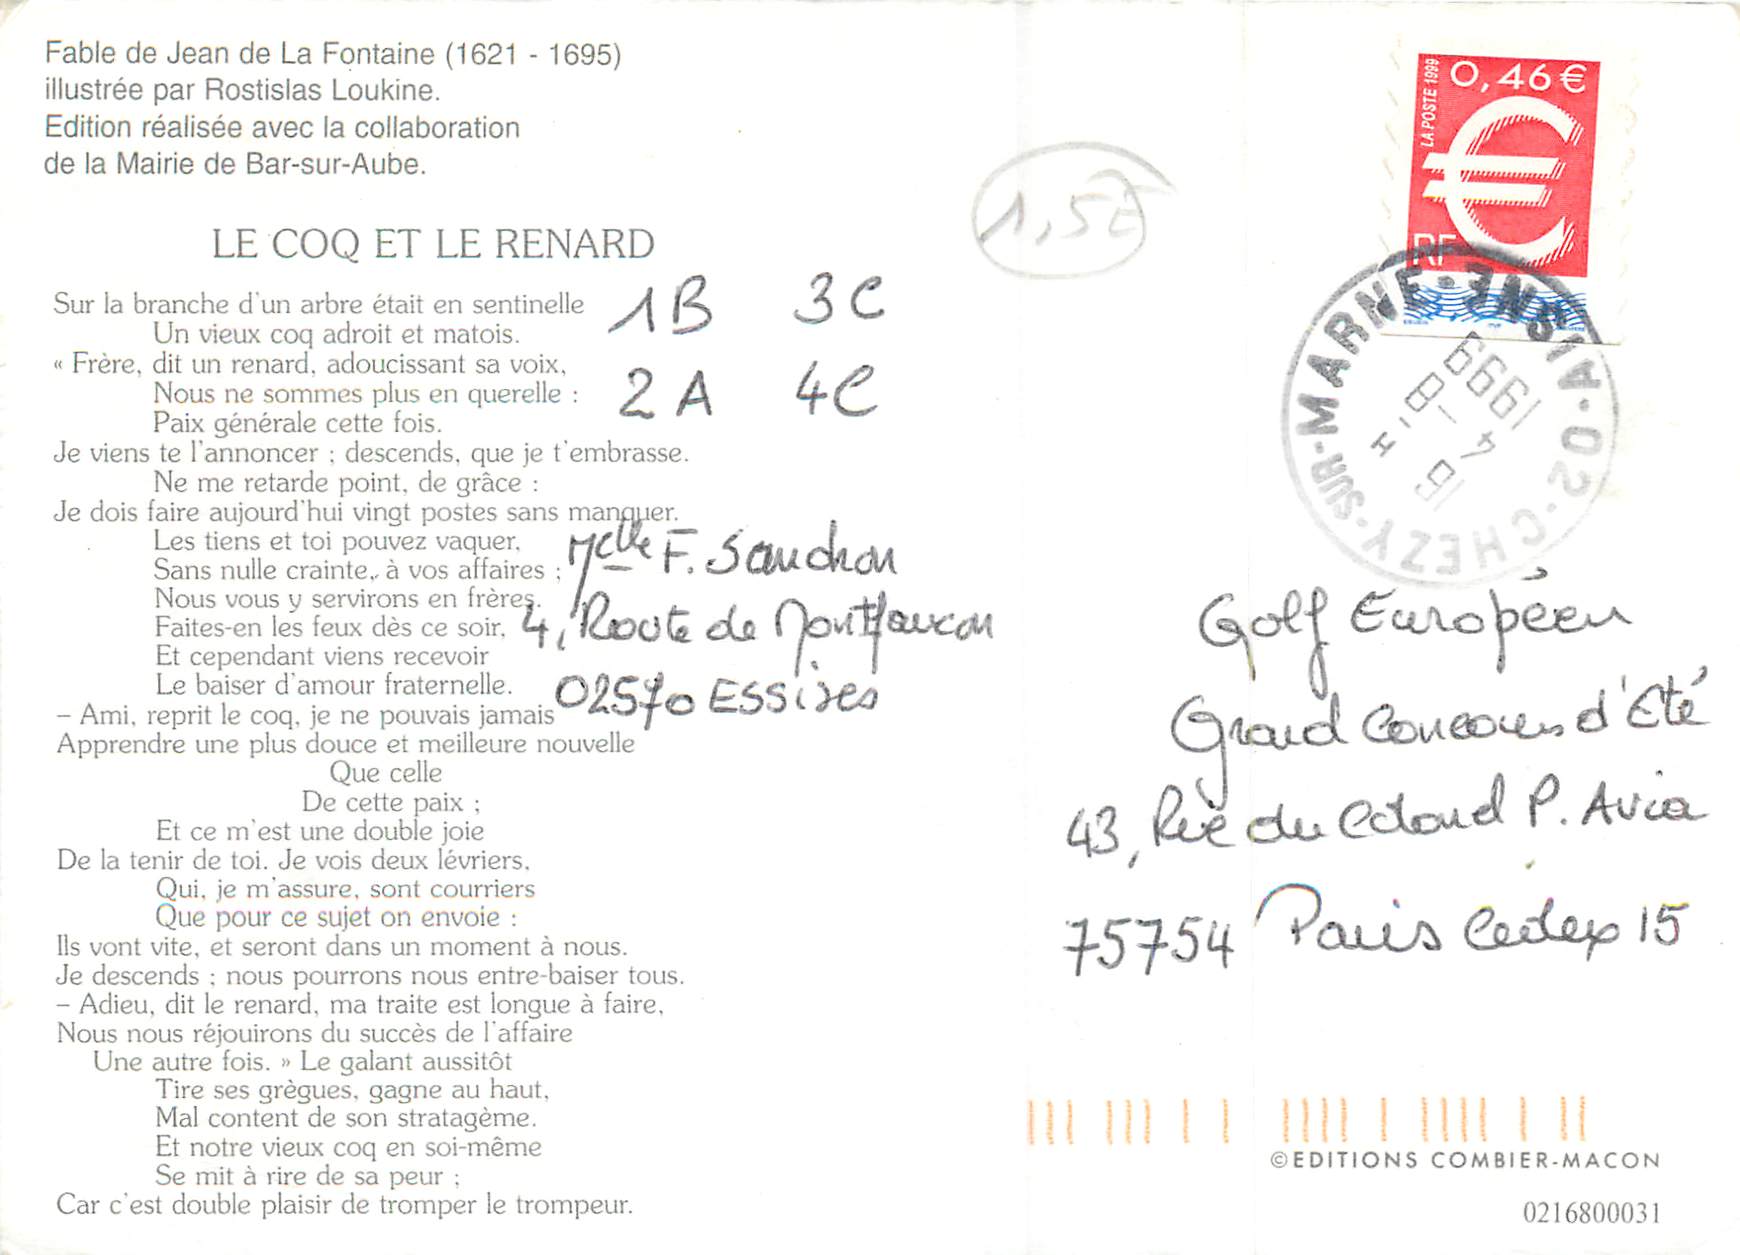 Fable de Jean de La Fontaine (1621 - 1695)
illustrée par Rostislas Loukine.
Edition réalisée avec la collaboration
de la Mairie de Bar-sur-Aube.
LE COQ ET LE RENARD
Sur la branche d'un arbre était en sentinelle
Un vieux coq adroit et matois.
« Frère, dit un renard, adoucissant sa voix,
Nous ne sommes plus en querelle :
Paix générale cette fois.
Je viens te l'annoncer ; descends, que je t'embrasse.
Ne me retarde point, de grâce :
Je dois faire aujourd'hui vingt postes sans manquer.
Les tiens et toi pouvez vaquer,
Sans nulle crainte, à vos affaires ;
Nous vous y servirons en frères.
Faites-en les feux dès ce soir,
Et cependant viens recevoir
Le baiser d'amour fraternelle.
– Ami, reprit le coq, je ne pouvais jamais
Apprendre une plus douce et meilleure nouvelle
Que celle
De cette paix ;
Et ce m'est une double joie
De la tenir de toi. Je vois deux lévriers,
Qui, je m'assure, sont courriers
Que pour ce sujet on envoie :
Ils vont vite, et seront dans un moment à nous.
Je descends ; nous pourrons nous entre-baiser tous.
– Adieu, dit le renard, ma traite est longue à faire,
Nous nous réjouirons du succès de l'affaire
Une autre fois. » Le galant aussitôt
Tire ses grègues, gagne au haut,
Mal content de son stratagème.
Et notre vieux coq en soi-même
Se mit à rire de sa peur ;
Car c'est double plaisir de tromper le trompeur.
1B 3C
2A 4C
Melle F. Sauchon
4, Route de Montfaucon
02570 ESSises
1,5€
LA POSTE 1999
0,46 €
€
RF
02 · CHEZY-SUR-MARNE · AISNE
16 -4
18 H
1999
Golf Européen
Grand Concours d'Eté
43, Rue du Colonel P. Avia
75754 Paris Cedex 15
©EDITIONS COMBIER-MACON
0216800031